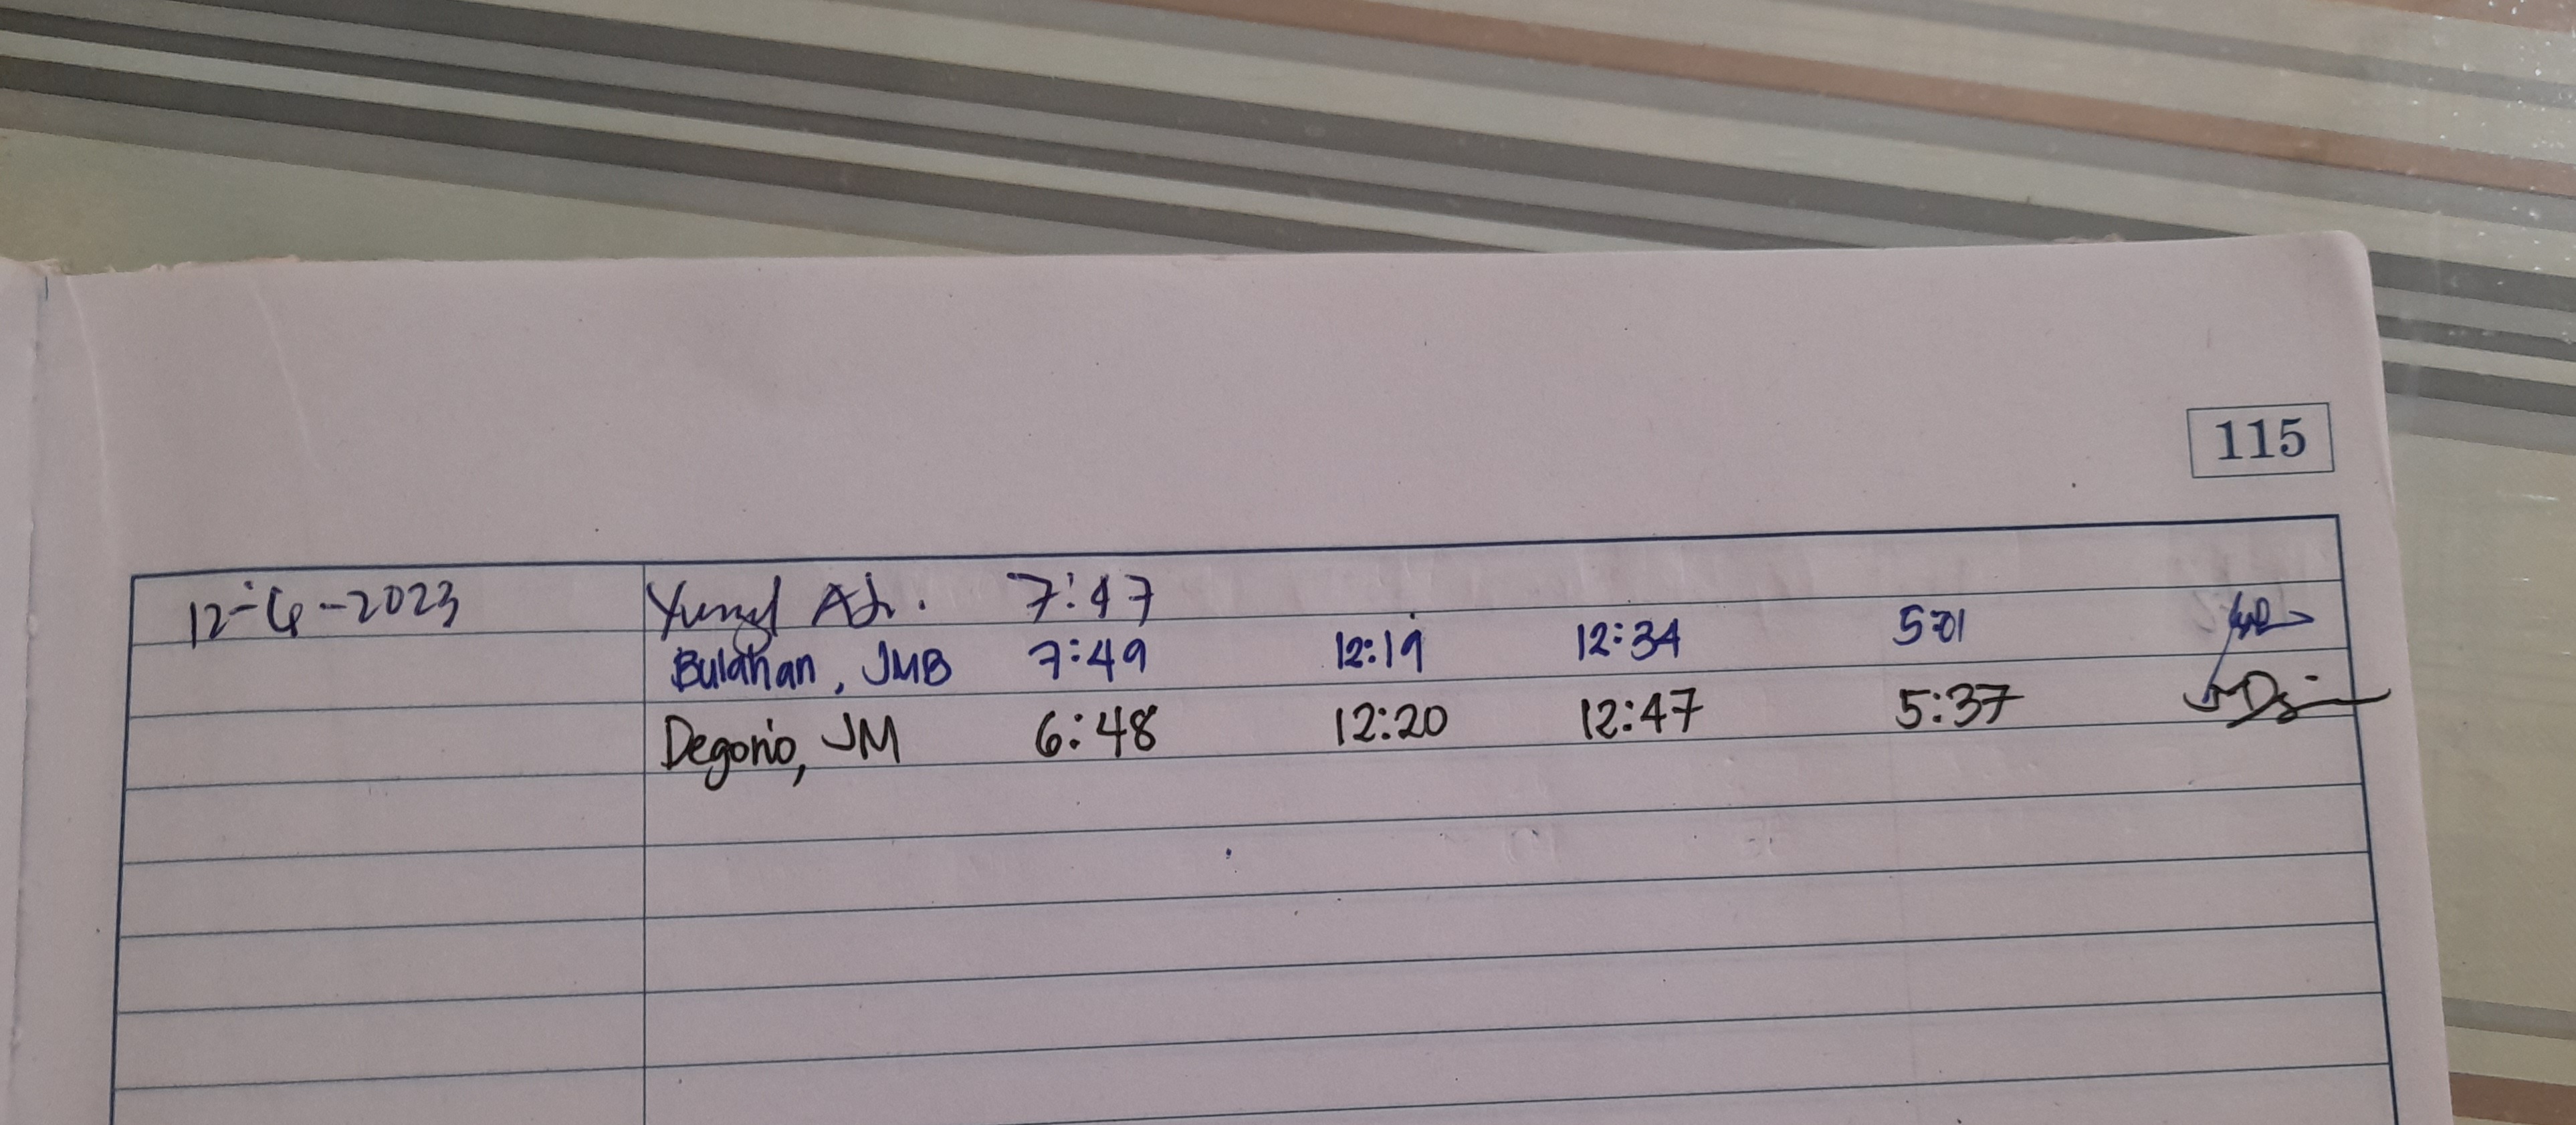 115
12-6-2023 7:47
Bulahan, JMB 7:49 12:19 12:34 5:01
Degorio, JM 6:48 12:20 12:47 5:37